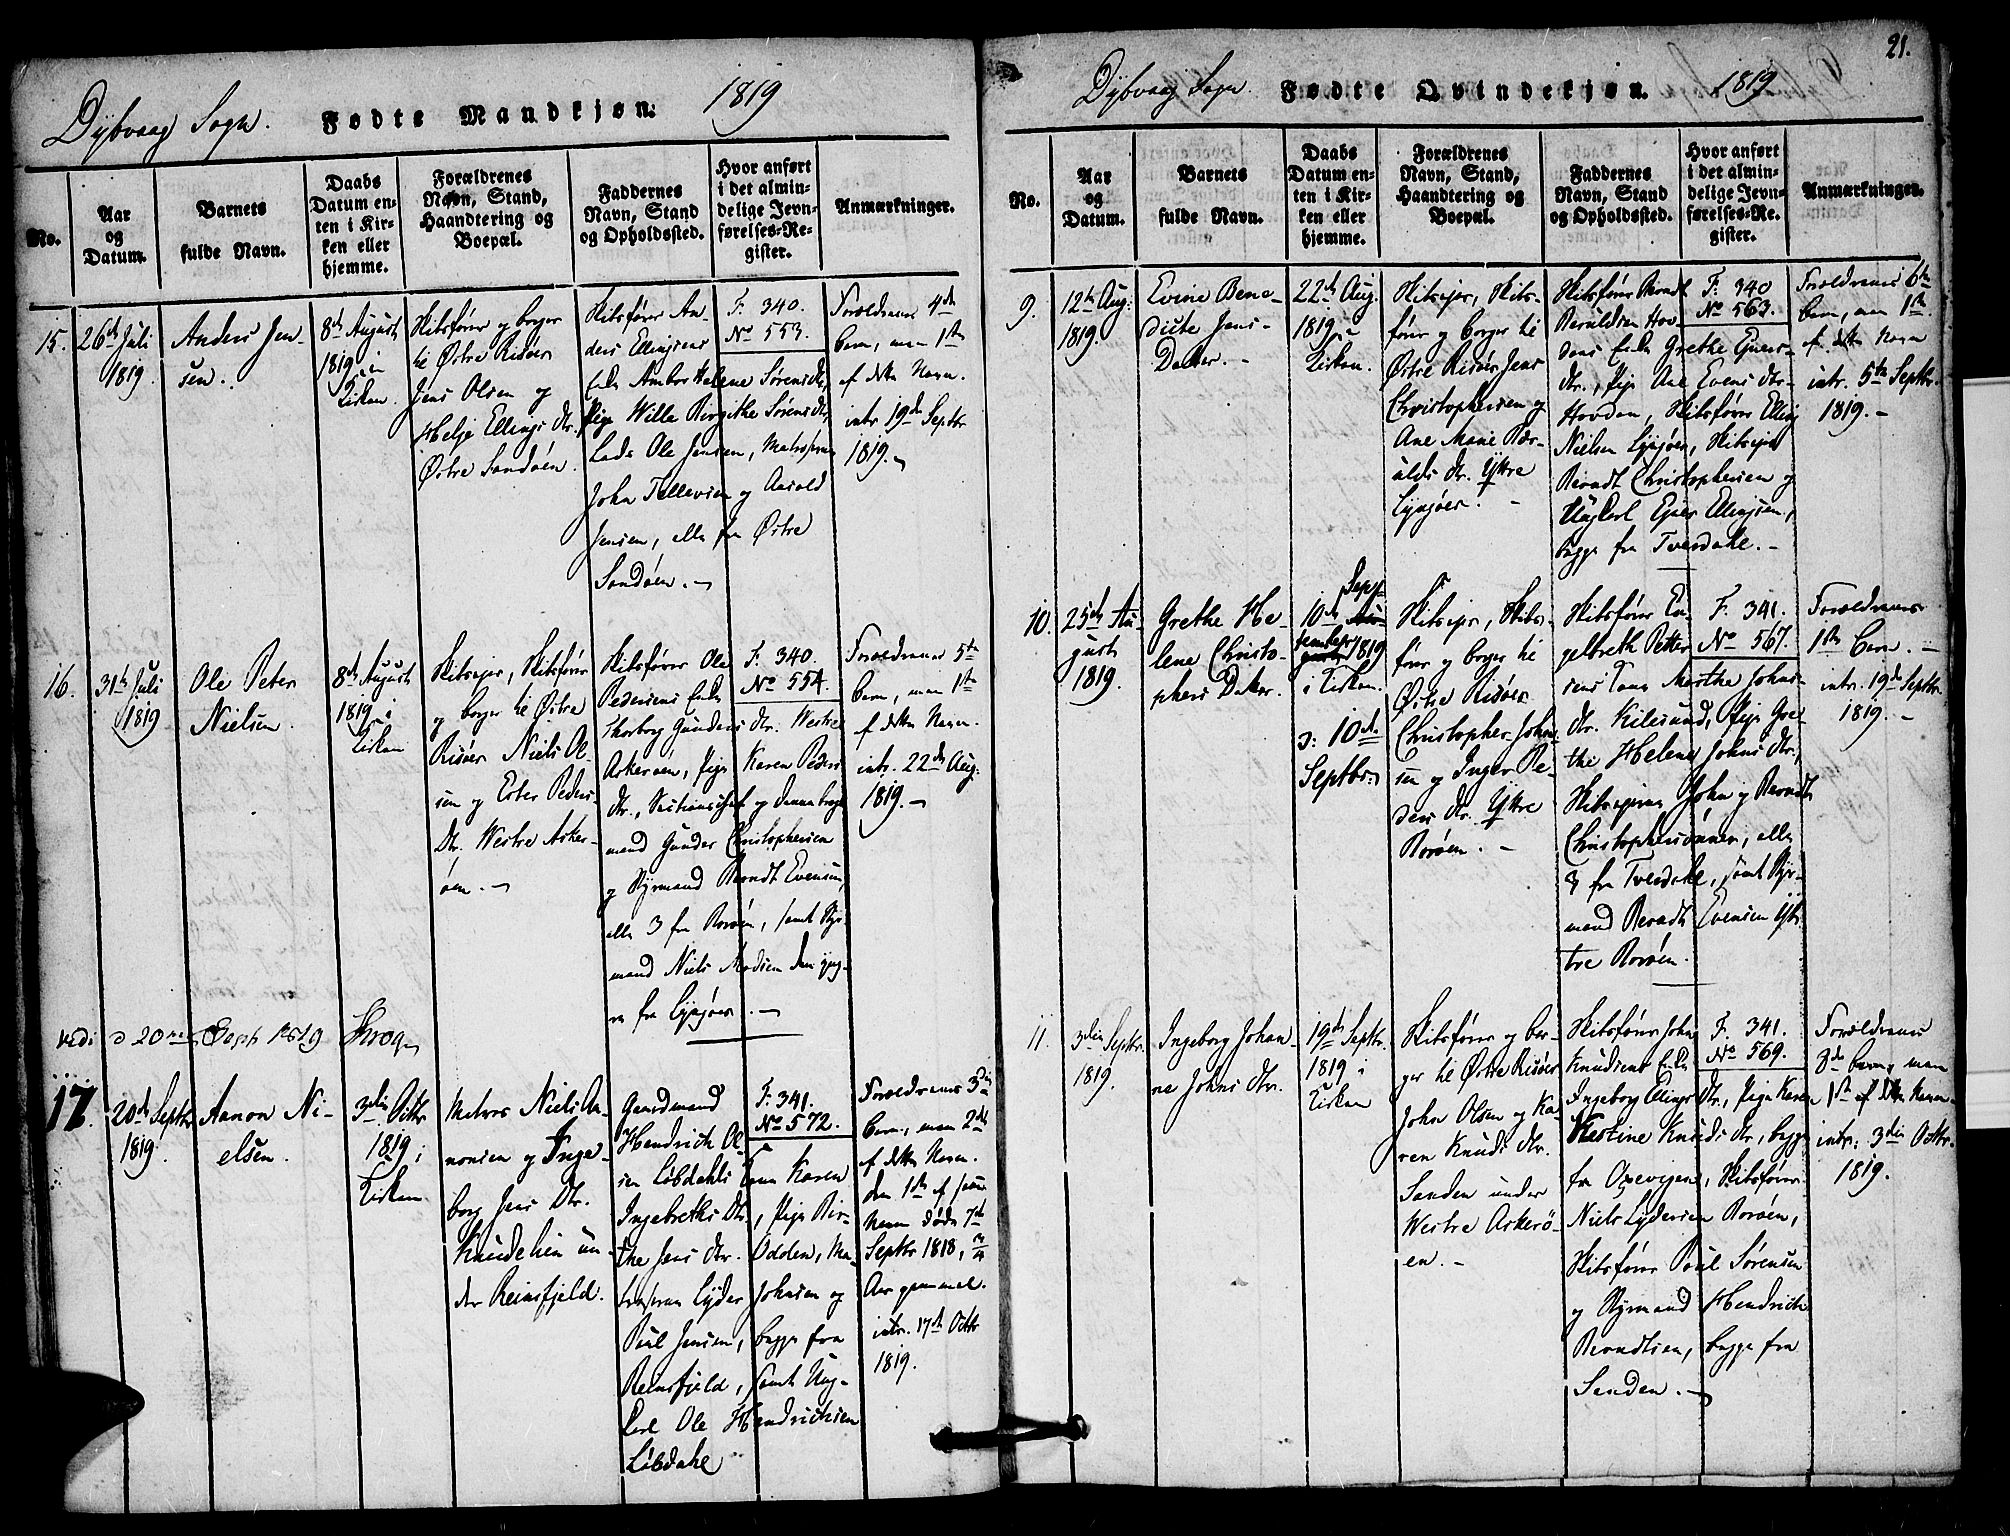 Dybvaag Sogn. Fødte Mandkjøn. 1819
No.
Aar
og
Datum.
Barnets
fulde Navn.
Daabs
Datum en-
ten i Kir-
ken eller
hjemme.
Forældrenes
Navn, Stand,
Haandtering og
Boepæl.
Faddernes
Navn, Stand
og Opholdssted.
Hvor anført
i det almin-
delige Jevn-
førelses-Re-
gister.
Anmærkninger.
15.
26de Juli
1819.
Anders Jen-
sen.
8de August
1819 i
Kirken.
Skibsfører og borger
til Østre Risøer
Jens Olsen og
Helje Ellings Dtr.
Østre Sandøen.
Skibsfører An-
ders Ellingsens
Enke Ambor Helene Sørens dtr,
Pige Wille Birgithe Sørens dtr,
Lods Ole Jensen, Matroserne
John Tellevsen og Aasold
Jensen, alle fra Østre
Sandøen.
F. 340.
No 553.
Forældrenes 4de
barn, men 1ste
af dette Navn.
intr. 19de Septbr
1819.
16.
31te Juli
1819
Ole Peter
Nielsen.
8de August
1819 i
Kirken
Skibseier, Skibsfører
og borger til Østre
Risøer Niels Ol-
sen og Ester Peders-
Dtr. Westre Asker-
øen.
Skibsfører Ole
Pedersens Enke
Thorborg Gunders dtr. Westre
Askerøen, Pige Karen Peders
dtr., og dannebrogs
mand Gunder Christophersen
og Styrmand Berndt Evensen,
alle 3 fra Borøen, samt Styr-
mand Niels Madsen den yng-
re fra Lyngøer.
F. 340.
No 554.
Forældrenes 5te
barn, men 1ste
af dette Navn.
intr. 22de Aug:
1819.
d 20 Sept 1819
17.
20de Septbr
1819.
Aanon Ni-
elsen.
3die Octbr
1819 i
Kirken
Matros Niels Aa-
nonsen og Inge-
borg Jens Dtr.
Knudehei un-
der Reinsfjeld.
Gaardmand
Hendrich Ol-
sen Løbdahls Kone Karen
Ingebreths Dtr., Pige Bir-
the Jens dtr. Odden, Ma-
troserne Lyder Johnsen og
Poul Jensen, begge fra
Reinsfjeld, samt Ung-
karl Ole Hendrichsen
Løbdahl
F. 341.
No 572.
Forældrenes 3die
barn, men 2det
af dette Navn.
den 1ste af samme
Navn døde 7de
Septbr 1818, 3/4
Aar gammel.
intr. 17de Octbr
1819.
21.
Dybvaag Sogn. Fødte Qvindekjøn. 1819
No.
Aar
og
Datum.
Barnets
fulde Navn.
Daabs
Datum en-
ten i Kir-
ken eller
hjemme.
Forældrenes
Navn, Stand,
Haandtering og
Boepæl.
Faddernes
Navn, Stand
og Opholdssted.
Hvor anført
i det almin-
delige Jevn-
førelses-Re-
gister.
Anmærkninger.
9.
12te Aug:
1819.
Evine Bene-
dicte Jens-
Datter.
22de Aug.
1819 i
Kirken.
Skibseier, Skibs-
fører og borger til
Østre Risøer Jens
Christophersen og
Ane Marie Bær-
ulds dtr. Ytre
Lyngøer.
Skibsfører Berndt
Beruldsen Hov-
dens Enke Grethe Ejers-
dtr., Pige Ane Evens dtr-
Hovden, Skibsfører Elling
Nielsen Lyngøer, Skibseier
Berndt Christophersen og
Ungkarl Ejer Ellingsen,
begge fra Tverdahl.
F. 340
No 563.
Forældrenes 6te
barn, men 1ste
af dette Navn
intr. 5te Septbr.
1819.
10.
25de Au-
gust
1819.
Grethe He-
lene Christo-
phers Datter.
10de
1819
i Kirken.
ɔ: 10de
Septbr:
Skibseier, Skibs-
fører og borger til
Østre Risøer
Christopher John-
sen og Inger Pe-
ders dtr. Ytre
Borøen.
Skibsfører En-
gelbreth Petter
sens Kone Marthe Johns-
dtr. Kilesund, Pige Gre-
the Helene Johns dtr,
Skibseierne John og Berndt
Christophersønner, alle
3 fra Tverdahl, samt Styr-
mand Berndt Evensen Yt-
tre Borøen.
F. 341.
No 567.
Forældrenes
1ste Barn.
intr. 19de Septbr.
1819.
11.
3die Septbr.
1819.
Ingeborg Johan-
ne Johns dtr.
19de Septbr.
1819 i
Kirken
Skibsfører og bor-
ger til Østre Risøer
John Olsen og Ka-
ren Knuds dtr.
Sanden under
Westre Askerø-
en.
Skibsfører John
Knudsens Enke
Ingeborg Ellings dtr, Pige Karen
Kestine Knuds dtr, begge
fra Oxevigen, Skibsfører
Niels Lydersen Borøen,
Skibsfører Poul Sørensen
og Styrmand Hendrich
Berndtsen, begge fra
Sanden.
F. 341.
No 569.
Forældrenes
barn, men
1ste af dette Navn
intr: 3die Octbr.
1819.